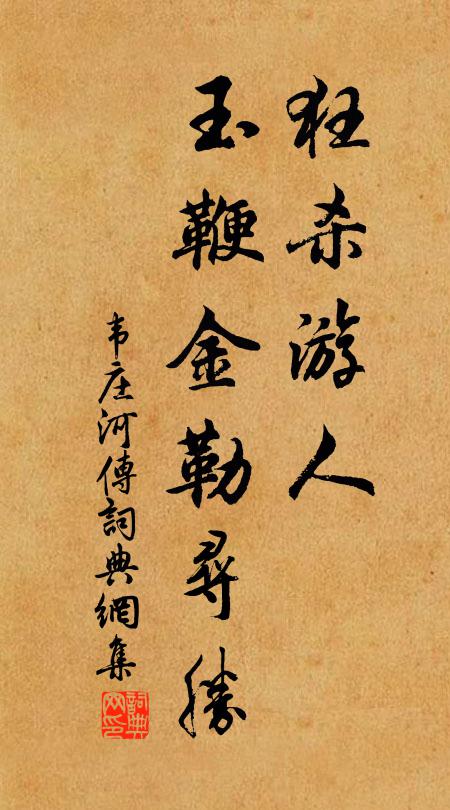 狂杀游人
玉鞭金勒尋勝
韦庄河傳詞典網集
詞典网印